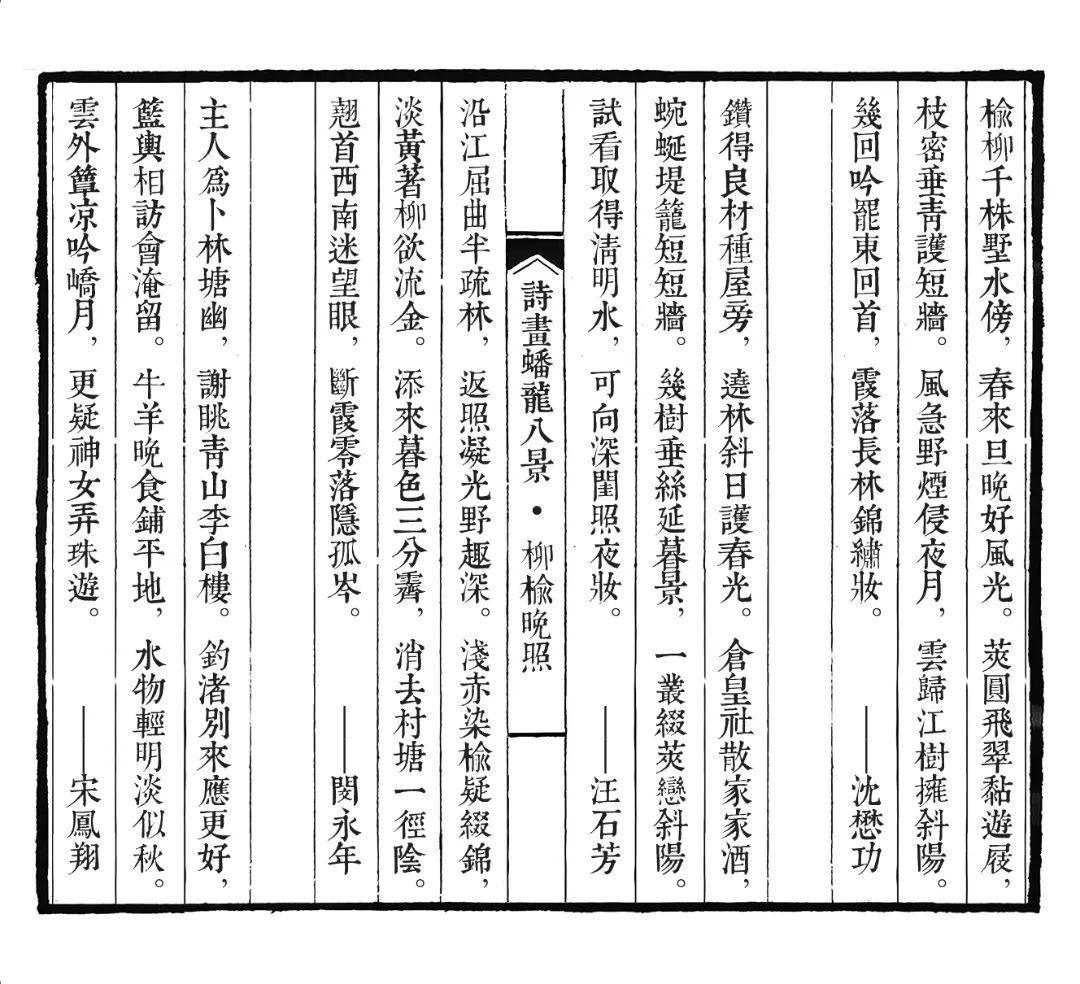 榆柳千株墅水傍，春來旦晚好風光。莢圓飛翠黏遊屐，
枝密垂靑護短牆。風急野煙侵夜月，雲歸江樹擁斜陽。
幾回吟罷東回首，霞落長林錦繡妝。——沈懋功
鑽得良材種屋旁，遶林斜日護春光。倉皇社散家家酒，
蜿蜒堤籠短短牆。幾樹垂絲延暮景，一叢綴莢戀斜陽。
試看取得淸明水，可向深閨照夜妝。——汪石芳
詩畫蟠龍八景·柳榆晚照
沿江屈曲半疏林，返照凝光野趣深。淺赤染榆疑綴錦，
淡黃著柳欲流金。添來暮色三分靄，消去村塘一徑陰。
翹首西南迷望眼，斷霞零落隱孤岑。——閔永年
主人爲卜林塘幽，謝眺靑山李白樓。釣渚別來應更好，
籃輿相訪會淹留。牛羊晚食鋪平地，水物輕明淡似秋。
雲外簟凉吟嶠月，更疑神女弄珠遊。——宋鳳翔